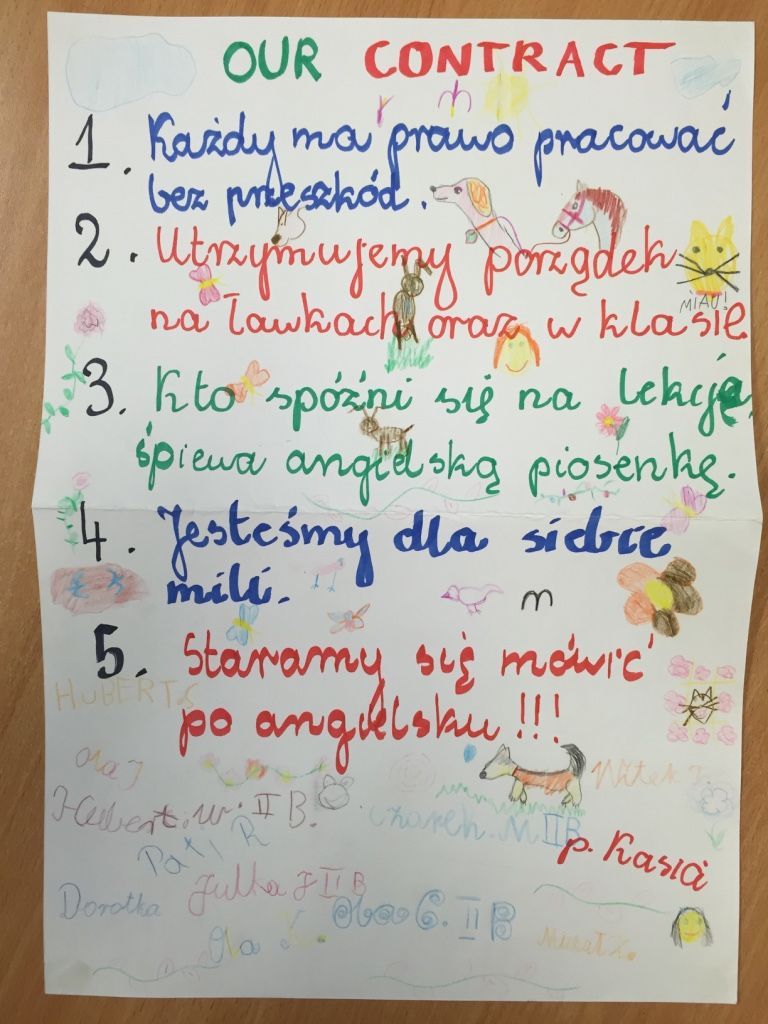 OUR CONTRACT
1. Każdy ma prawo pracować
bez przeszkód.
2. Utrzymujemy porządek
na ławkach oraz w klasie
MIAU!
3. Kto spóźni się na lekcję,
śpiewa angielską piosenkę.
4. Jesteśmy dla siebie
mili.
5. Staramy się mówić
po angielsku!!!
HUBERT S
Ola J
Witek
Hubert. W. II B.
Czarek. M II B
Pati R
p. Kasia
Julka J II B
Dorotka
Ola C. II B
Ola K.